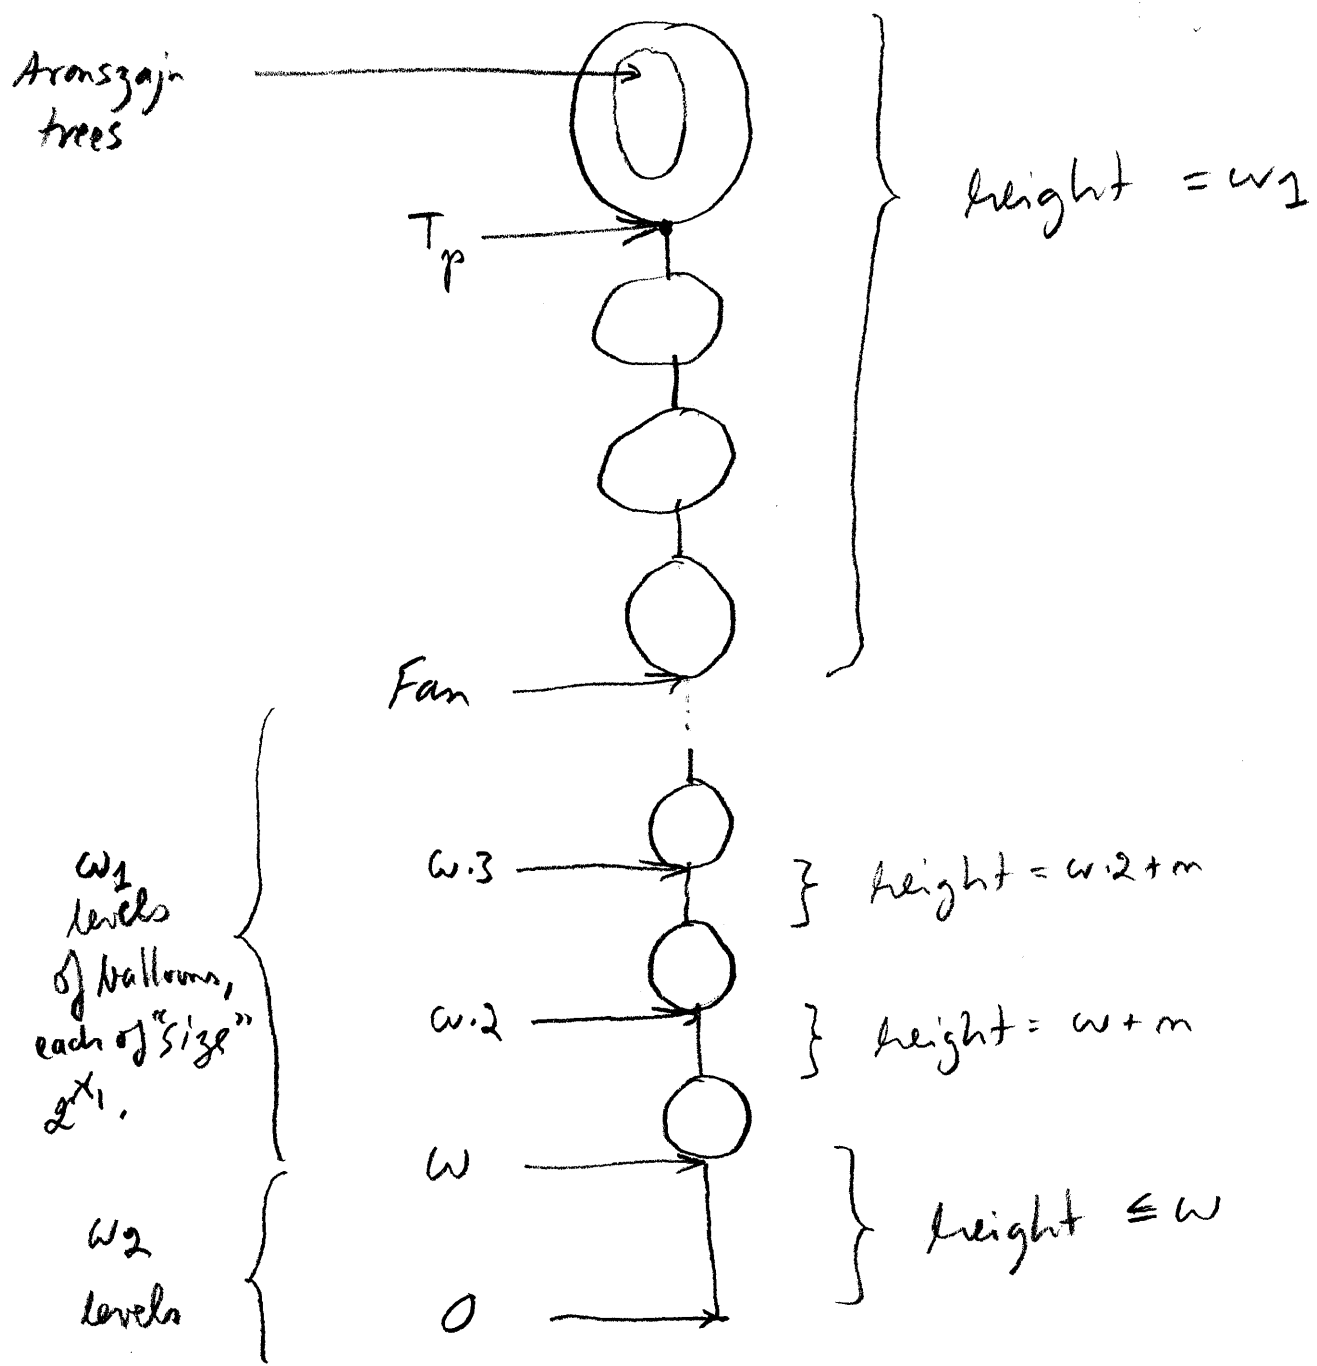 Aronszajn
trees
height = ω1
Tp
Fan
ω1
levels
of balloons,
each of "size"
2^ℵ1.
ω.3
height = ω.2+n
ω.2
height = ω+n
ω
height ≤ ω
ω2
levels
0